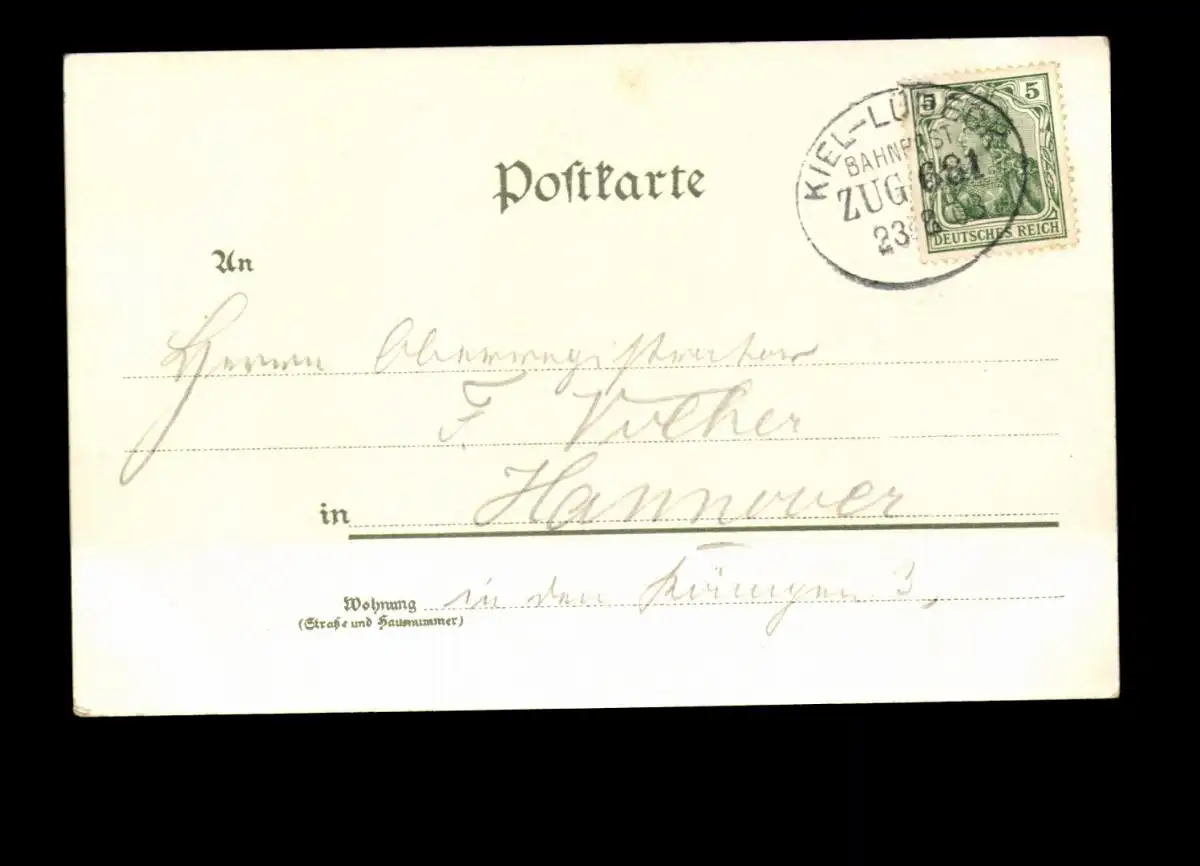 KIEL-LÜBECK
BAHNPOST
ZUG 681
23 2 03
5 5
DEUTSCHES REICH
Poſtkarte
An
Herrn Oberregistrator
F. Völker
in Hannover
Wohnung in den 3,
(Straße und Hausnummer)